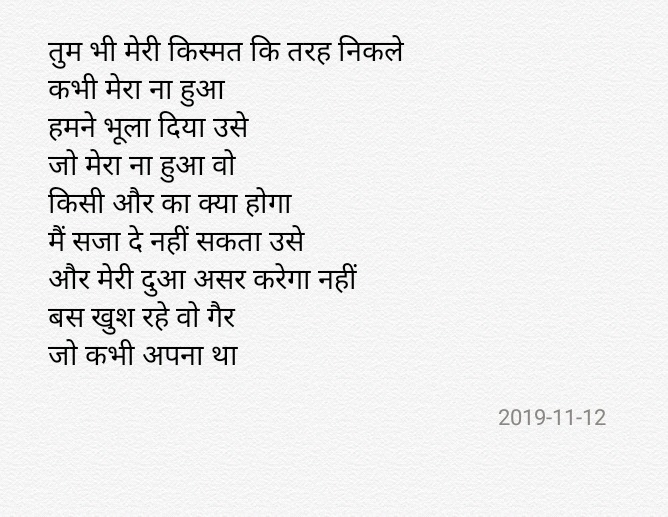 तुम भी मेरी किस्मत कि तरह निकले
कभी मेरा ना हुआ
हमने भूला दिया उसे
जो मेरा ना हुआ वो
किसी और का क्या होगा
मैं सजा दे नहीं सकता उसे
और मेरी दुआ असर करेगा नहीं
बस खुश रहे वो गैर
जो कभी अपना था
2019-11-12